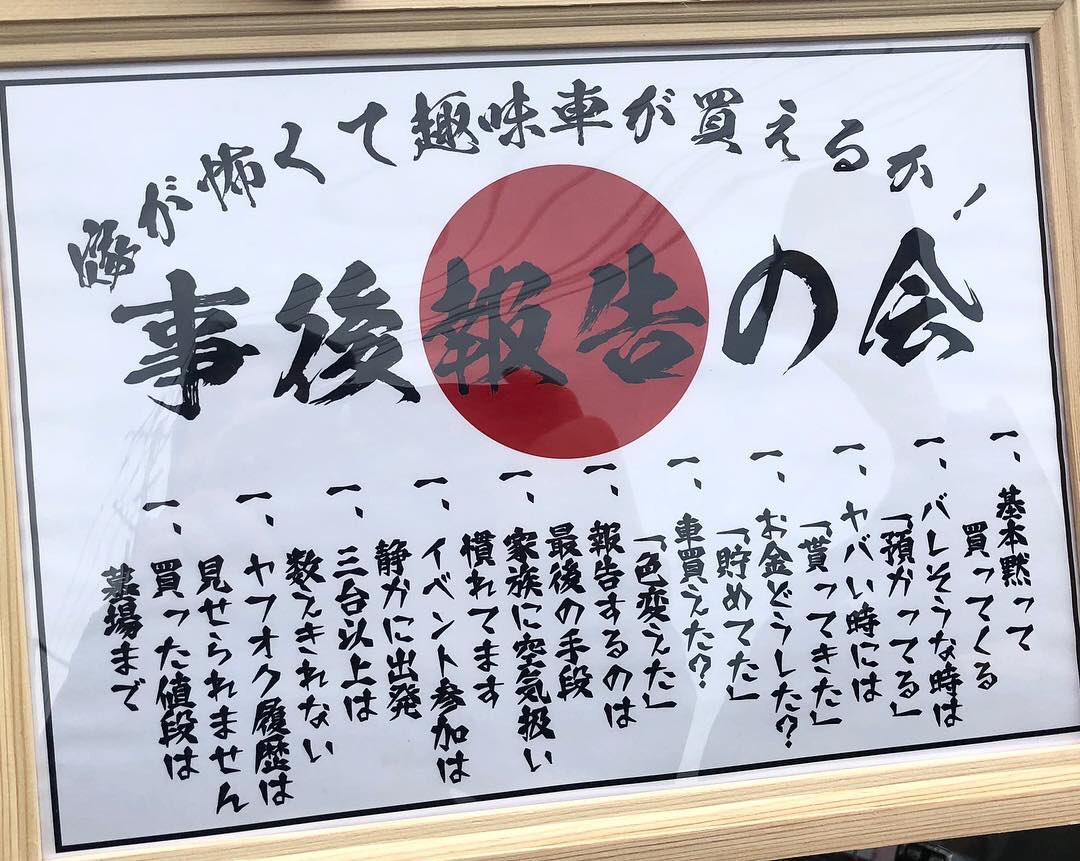 嫁が怖くて趣味車が買えるか!
事後報告の会
一、基本黙って
買ってくる
一、バレそうな時は
「預かってる」
一、ヤバい時には
「貰ってきた」
一、お金どうした?
「貯めてた」
一、車買えた?
「色変えた」
一、報告するのは
最後の手段
一、家族に空気扱い
慣れてます
一、イベント参加は
静かに出発
一、三台以上は
数えきれない
一、ヤフオク履歴は
見せられません
一、買った値段は
墓場まで